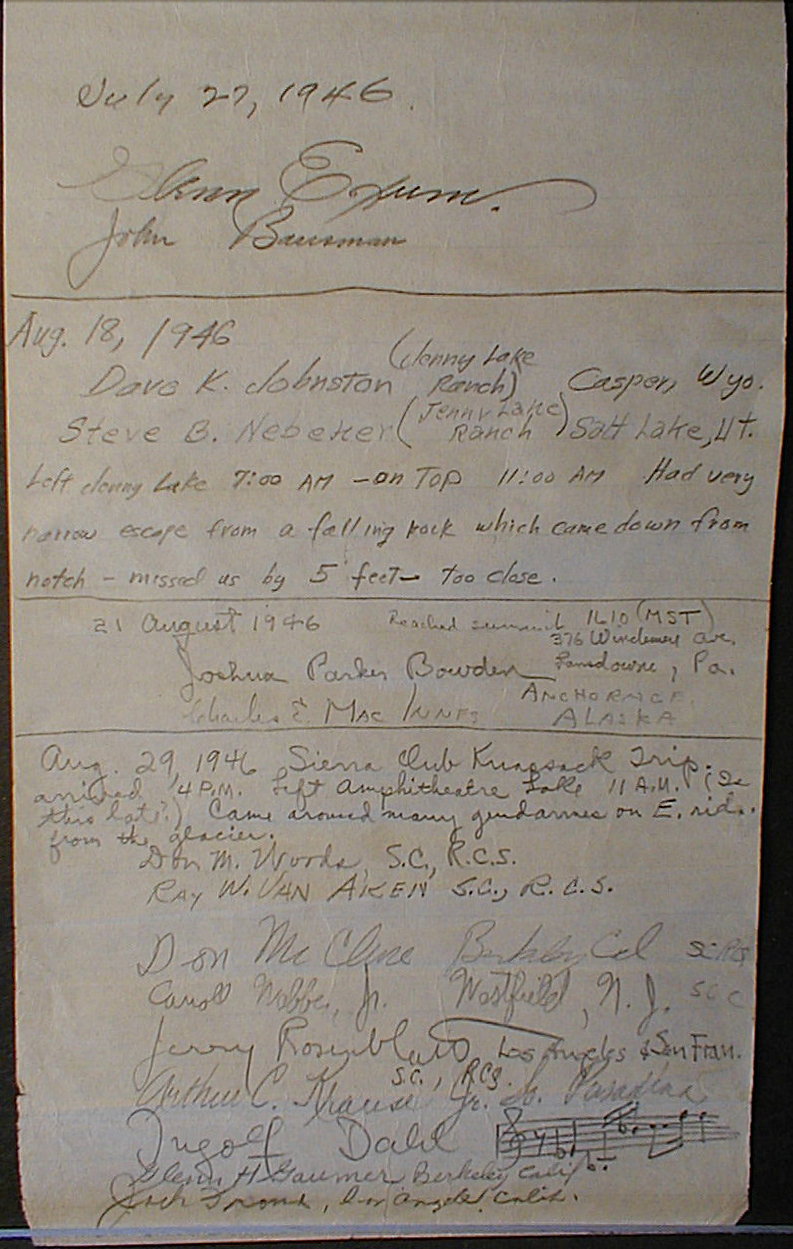 July 27, 1946.
Glenn Exum.
John Bausman
Aug. 18, 1946
Dave K. Johnston (Jenny Lake Ranch) Casper, Wyo.
Steve B. Nebeker (Jenny Lake Ranch) Salt Lake, Ut.
Left Jenny Lake 7:00 AM - on Top 11:00 AM Had very
narrow escape from a falling rock which came down from
notch - missed us by 5 feet - too close.
21 August 1946 Reached summit 1610 (MST)
376 Windermere Ave.
Joshua Parker Bowden Lansdowne, Pa.
Charles E. Mac Innes Anchorage Alaska
Aug. 29, 1946 Sierra Club Knapsack Trip.
arrived 4 P.M. Left Amphitheatre Lake 11 A.M. (Is
this late?) Came around many gendarmes on E. ridge
from the glacier.
Don M. Woods, S.C., R.C.S.
Ray W. Van Aken S.C., R.C.S.
Don McClure Berkeley Cal SC RCS
Carroll Jr. Westfield, N.J. S C
Jerry Rosenblatt Los Angeles & San Fran.
S.C., RCS.
Arthur C. Krause Jr. So. Pasadena
Ingolf Dahl
Glenn H. Gaumer Berkeley Calif
Jack, Los Angeles, Calif.